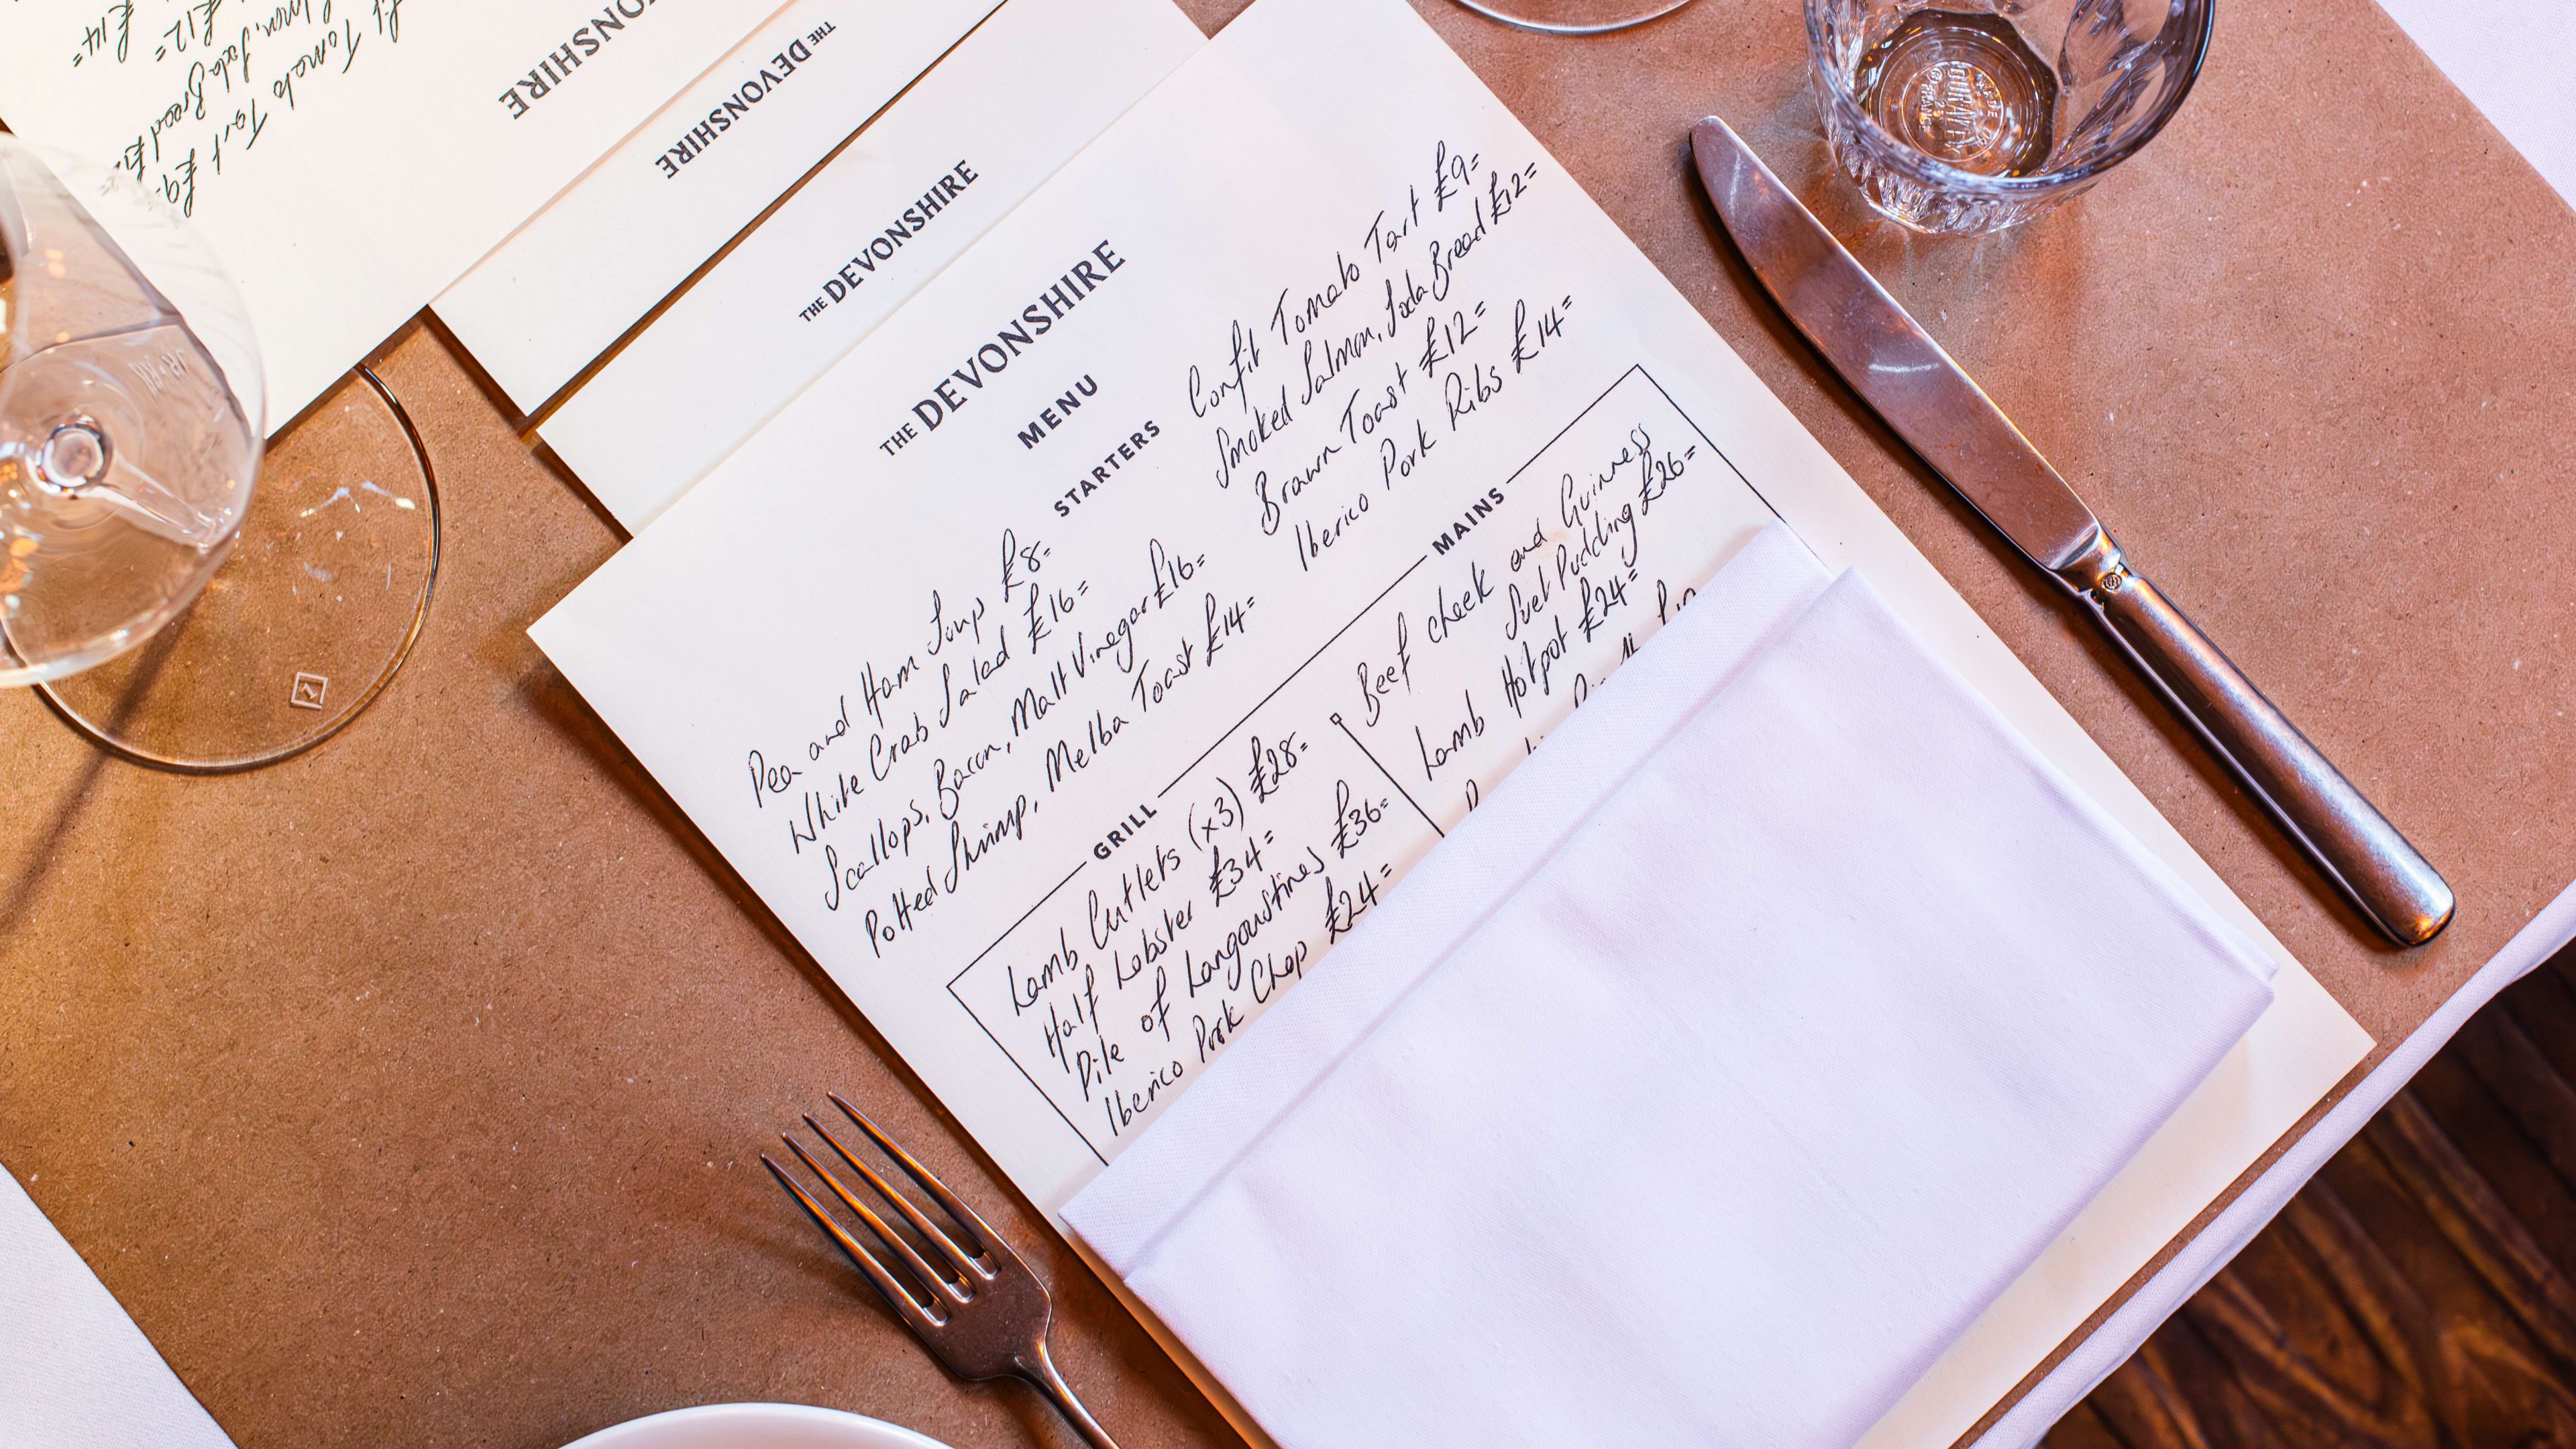 THE DEVONSHIRE
MENU
STARTERS
Pea and Ham Soup £8=
White Crab Salad £16=
Scallops, Bacon, Malt Vinegar £16=
Potted Shrimp, Melba Toast £14=
Confit Tomato Tart £9=
Smoked Salmon, Soda Bread £12=
Brawn Toast £12=
Iberico Pork Ribs £14=
GRILL
Lamb Cutlets (x3) £28=
Half Lobster £34=
Pile of Langoustines £36=
Iberico Pork Chop £24=
MAINS
Beef cheek and Guinness
Suet Pudding £26=
Lamb Hotpot £24=
THE DEVONSHIRE
THE DEVONSHIRE
DEVONSHIRE
Tomato Tart £9=
Soda Bread £12=
£12=
£14=
DURALEX
FRANCE